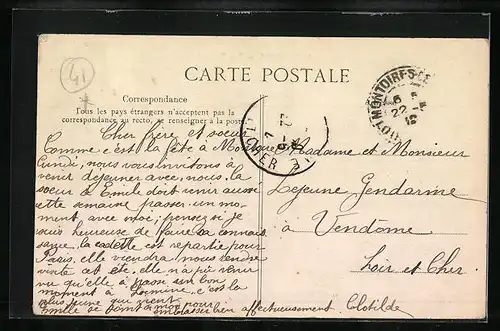 41
CARTE POSTALE
Correspondance
Tous les pays étrangers n'acceptent pas la
correspondance au recto, se renseigner à la poste
MONTOIRE-S-LE
22
Cher frère et soeur
Comme c'est la fête à
lundi, nous vous invitons à
venir dejeuner avec nous, la
soeur à Emile doit venir aussi
cette semaine passer un mo-
ment avec moi, pensez si je
suis heureuse de faire sa connais
sance, la cadette est repartie pour
Paris, elle viendra nous rendre
visite cet été, elle n'a pu venir
vu qu'elle à passé son bon
moment à c'est la
plus jeune qui vient
Emile se joint à moi pour
embrasser bien affectueusement Clotilde
Madame et Monsieur
Lejeune Gendarme
à Vendôme
Loir et Cher